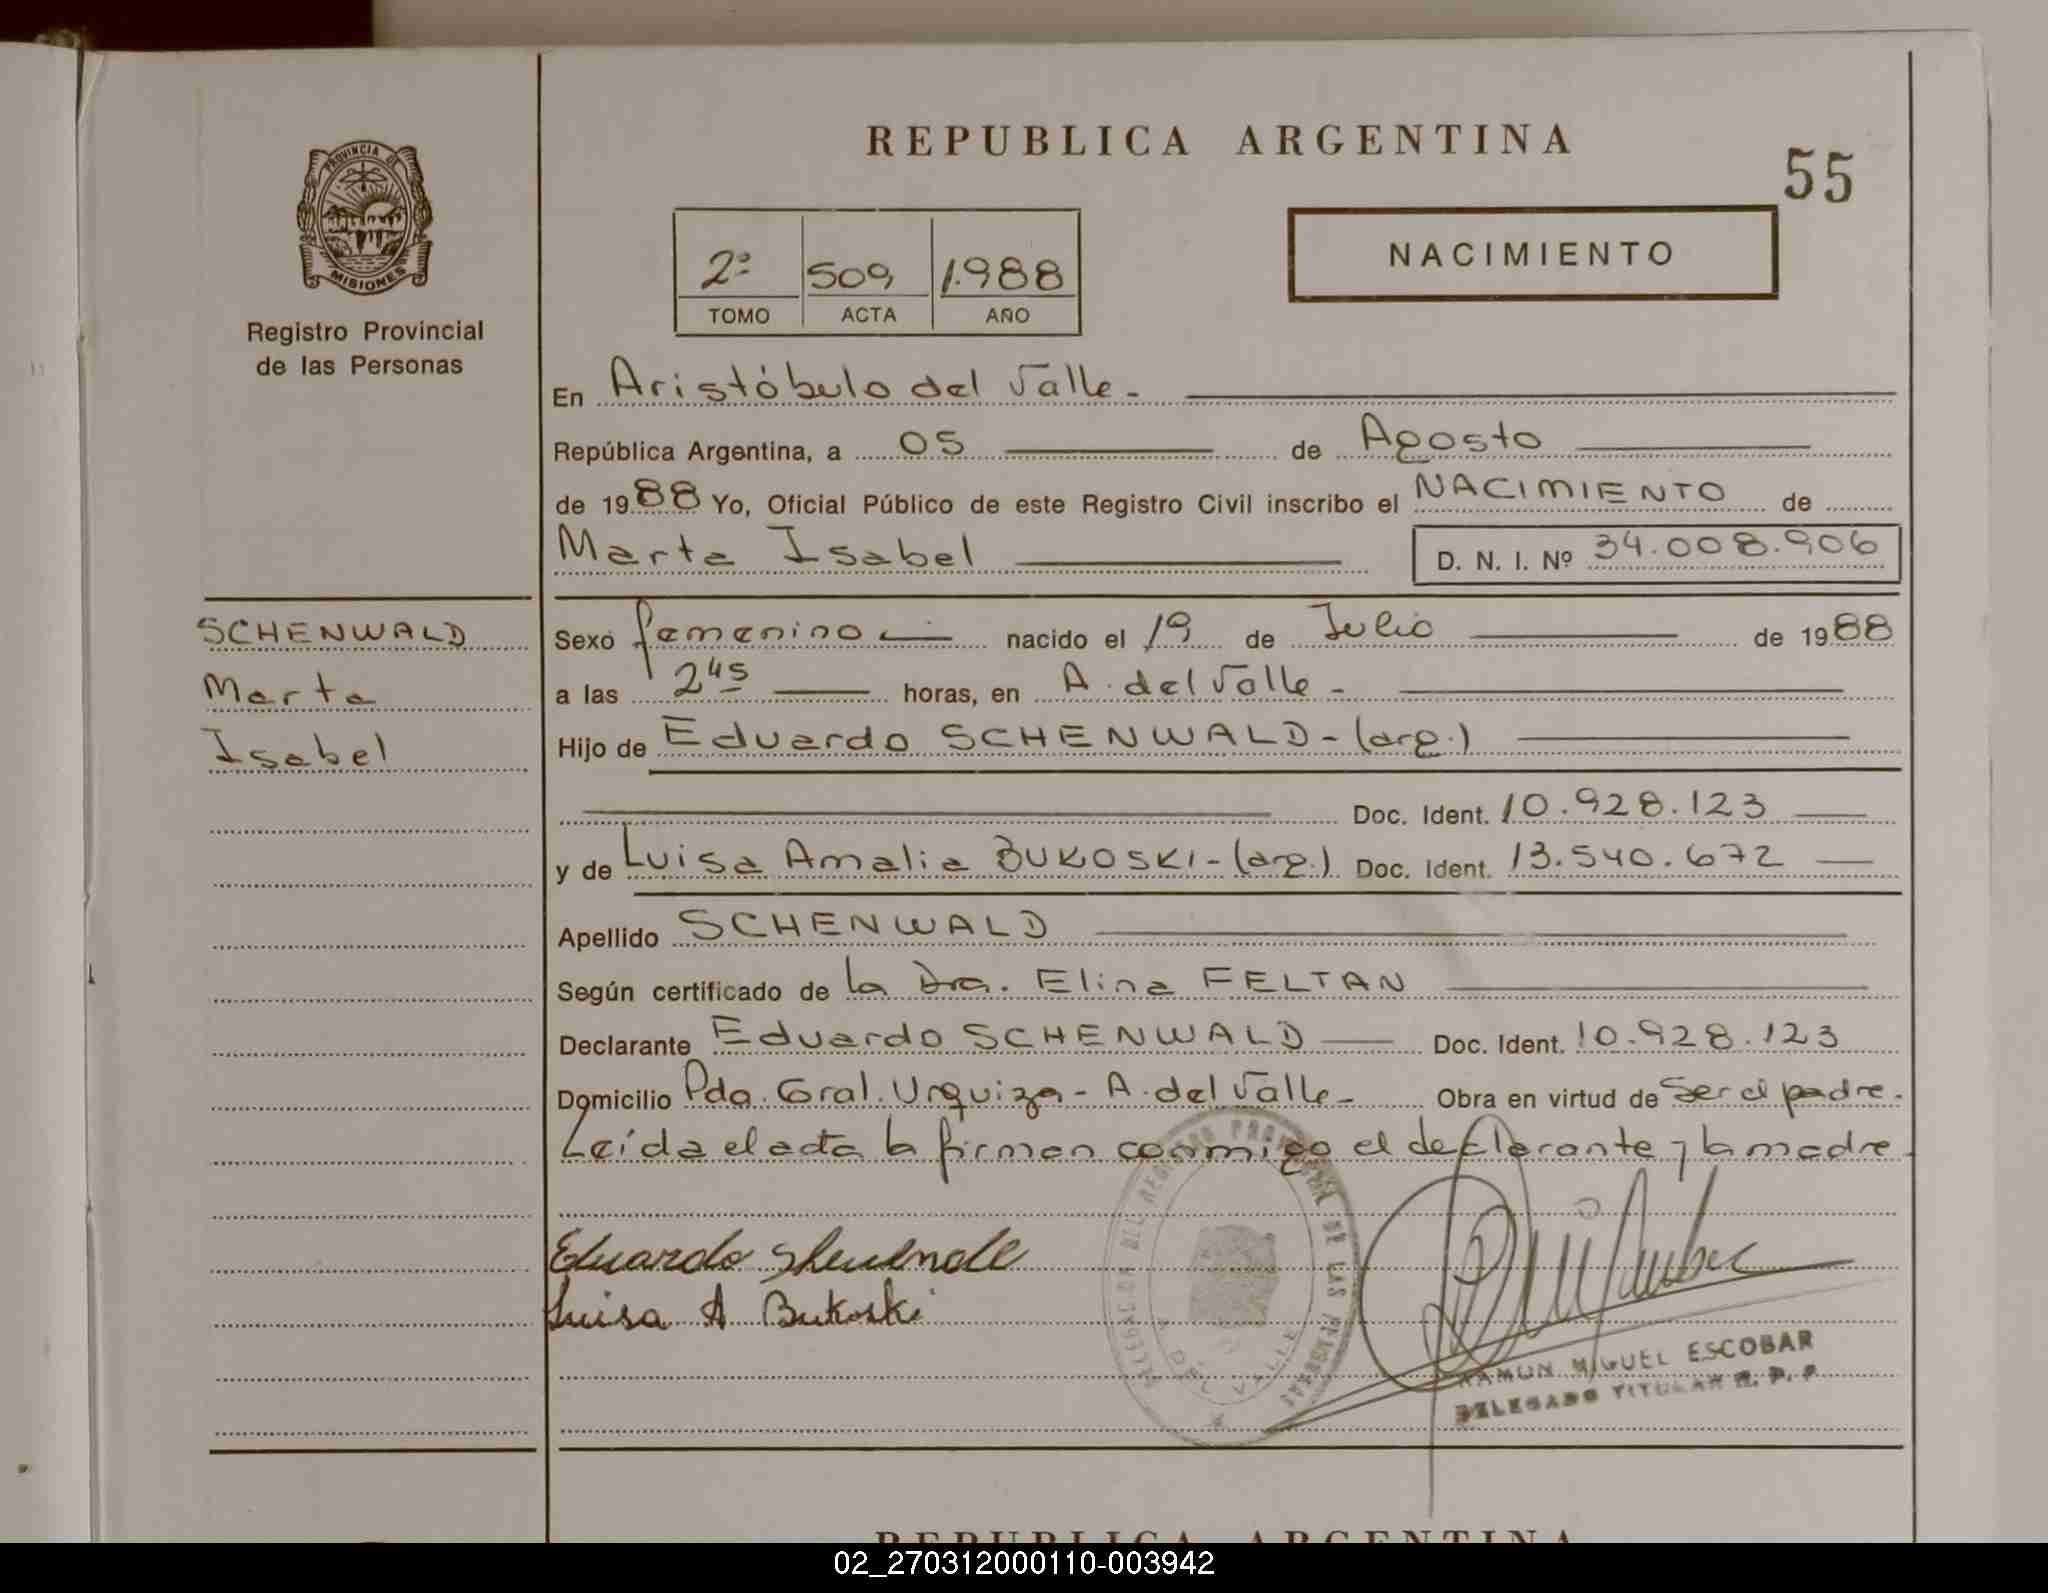 PROVINCIA DE
MISIONES
Registro Provincial
de las Personas
REPUBLICA ARGENTINA
55
2º 509 1.988
TOMO ACTA AÑO
NACIMIENTO
En Aristóbulo del Valle.-
República Argentina, a 05 de Agosto
de 1988 Yo, Oficial Público de este Registro Civil inscribo el NACIMIENTO de
Marta Isabel D. N. I. Nº 34.008.906
SCHENWALD
Marta
Isabel
Sexo femenino nacido el 19 de Julio de 1988
a las 2 45 horas, en A. del Valle -
Hijo de Eduardo SCHENWALD - (arg.)
Doc. Ident. 10.928.123
y de Luisa Amalia BUKOSKI - (arg.) Doc. Ident. 13.540.672
Apellido SCHENWALD
Según certificado de la Dra. Elina FELTAN
Declarante Eduardo SCHENWALD Doc. Ident. 10.928.123
Domicilio Pda. Gral. Urquiza - A. del Valle - Obra en virtud de ser el padre.
Leída el acta la firman conmigo el declarante y la madre.
Eduardo
Luisa A Bukoski
DELEGACION DEL REGISTRO PROVINCIAL DE LAS PERSONAS
A. DEL VALLE
RAMON MIGUEL ESCOBAR
DELEGADO TITULAR R. P. P.
REPUBLICA ARGENTINA
02_270312000110-003942